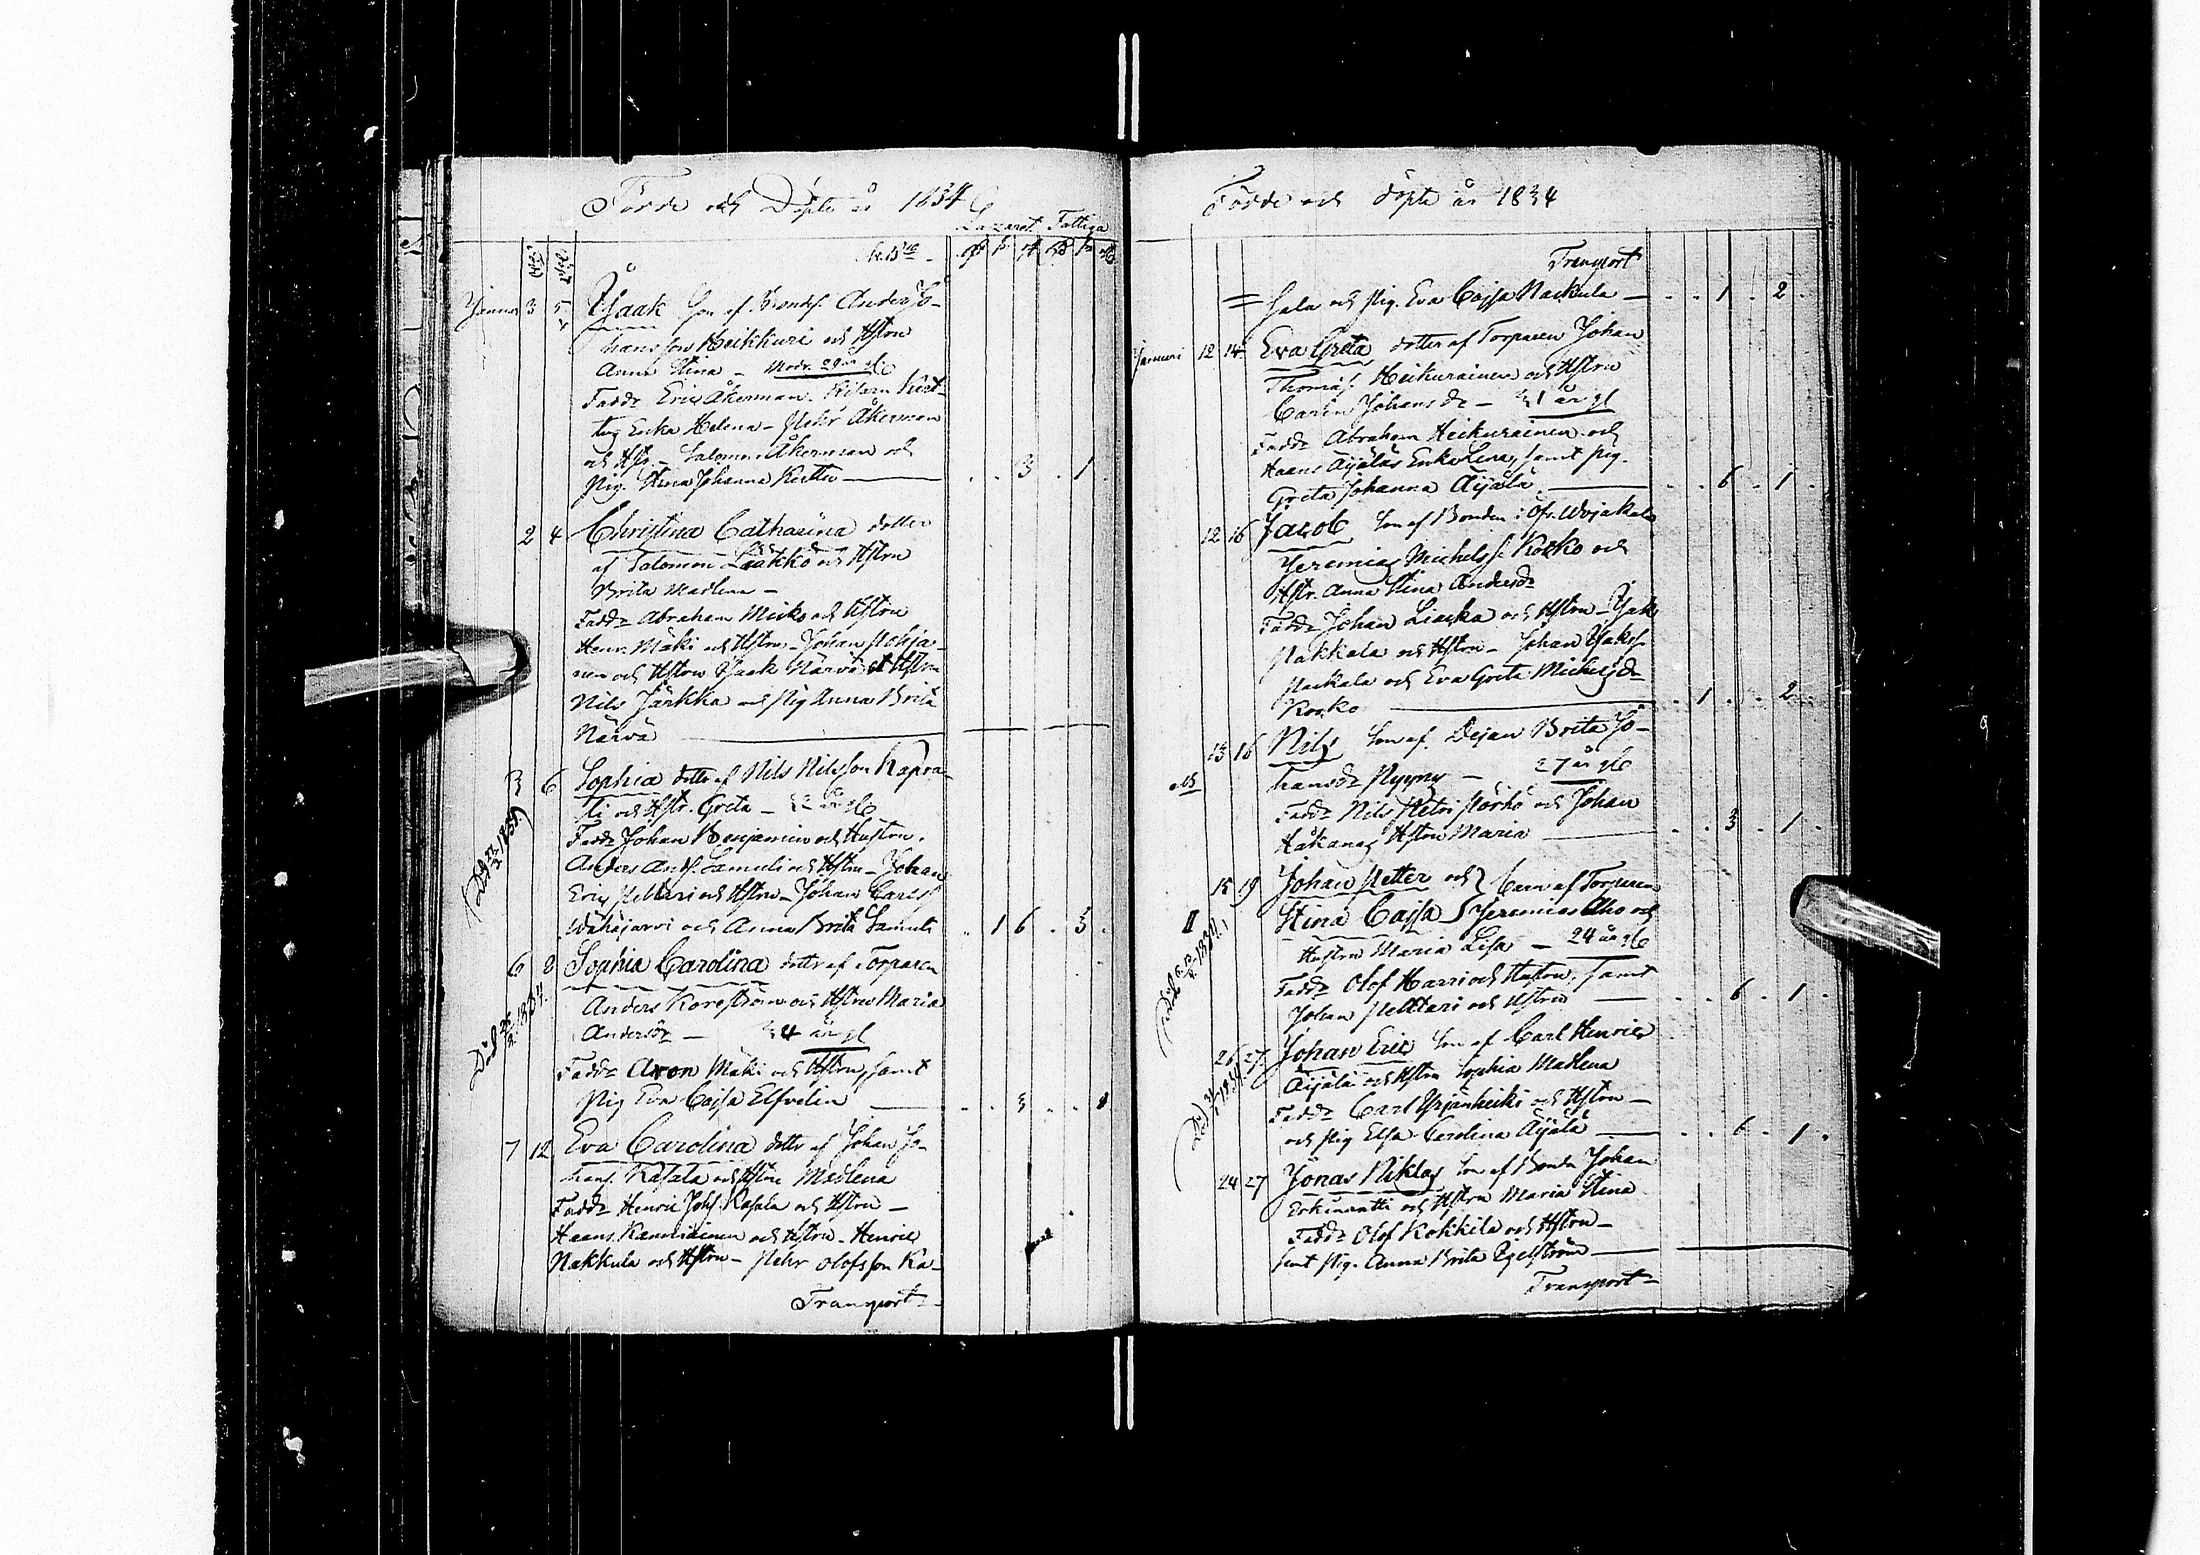 Födde och Döpte år 1834
Lazaret Fattiga
Januar 3 5 Isaak Son af Bonds. Anders Jo-
hansson Heikkuri och Hstru
Anna Stina - Modr. 29 år gl
Fadd Eric Åkerman
Enka Helena - Pehr Åkerman
och Hstr - Salomon Åkerman och
Pig. Stina Johanna 3 1
2 4 Christina Catharina dotter
af Salomon och Hstru
Brita Madlena -
Fadd Abraham Micko och Hstru
Henr. Mäki och Hstru - Johan Pohja-
nen och Hstru Isaak Närvä och Hstru
Nils Järkkä och Pig Anna Brita
Närvä
3 6 Sophia dotter af Nils Nilsson Kapra-
och Hstr. Greta - 32 år gl
Död 1839
Fadd Johan Benjamin och Hustru.
Anders And. Samuli och Hstru - Johan
Eric Pelttari och Hstru - Johan Carls
Wähäjärvi och Anna Brita Samuli 1 6 3
6 8 Sophia Carolina dotter af Torparen
Död 1834.
Anders Korsström och Hstru Maria
Andersdr - 34 år gl
Fadd Aron Mäki och Hstru, samt
Pig Eva Cajsa Elfvelin 3
7 12 Eva Carolina dotter af Johan Jo-
hans. Rasala och Hstru Madlena
Fadd Henric Johs. Rasala och Hstru -
Haans Kanniainen och Hstru - Henric
Nakkula och Hstru - Pehr Olofsson Ra-
Transport
Födde och döpte år 1834
Transport
= sala och Pig. Eva Cajsa Nackula - 1 2
Januari 12 14 Eva Greta dotter af Torparen Johan
Thomas. Heikurainen och Hstru
Carin Johansdr - 31 år gl
Fadd Abraham Heikurainen och
Haans Äijäläs Enka Lena, samt Pig.
Greta Johanna Äijälä 6 1
12 16 Jacob Son af Bonden i Öfv. Wojakala
Jeremias Michelss. Kosko och
Hstr. Anna Stina Andersdr
Fadd Johan Liacka och Hstru - Isak
Nakkala och Hstru - Johan Isaks.
Nackala och Eva Greta Michelsdr
Kosko 1 2
13 16 Nils Son af Dejan Brita Jo-
hansdr Nyyny - 27 år gl
Fadd Nils Petri Pörhö och Johan
Håkans Hstru Maria 3 1
15 19 Johan Petter och } barn af Torparen
II Stina Cajsa } Jeremias Aho och
Hustru Maria Lisa - 24 år gl
Fadd Olof Harri och Hustru, samt
Johan Pelttari och Hstru 6 1
25 27 Johan Eric Son af Carl Henric
Äijälä och Hstru Sophia Madlena
Fadd Carl Yrjänheiki och Hstru -
och Pig Elsa Carolina Äijälä 6 1
24 27 Jonas Niklas Son af Bonden Johan
Erkinantti och Hstru Maria Stina
Fadd Olof Kokkila och Hstru -
samt Pig. Anna Brita Egelström
Transport